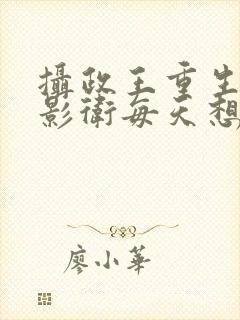 攝政王重生
影衛每天想
廖小華